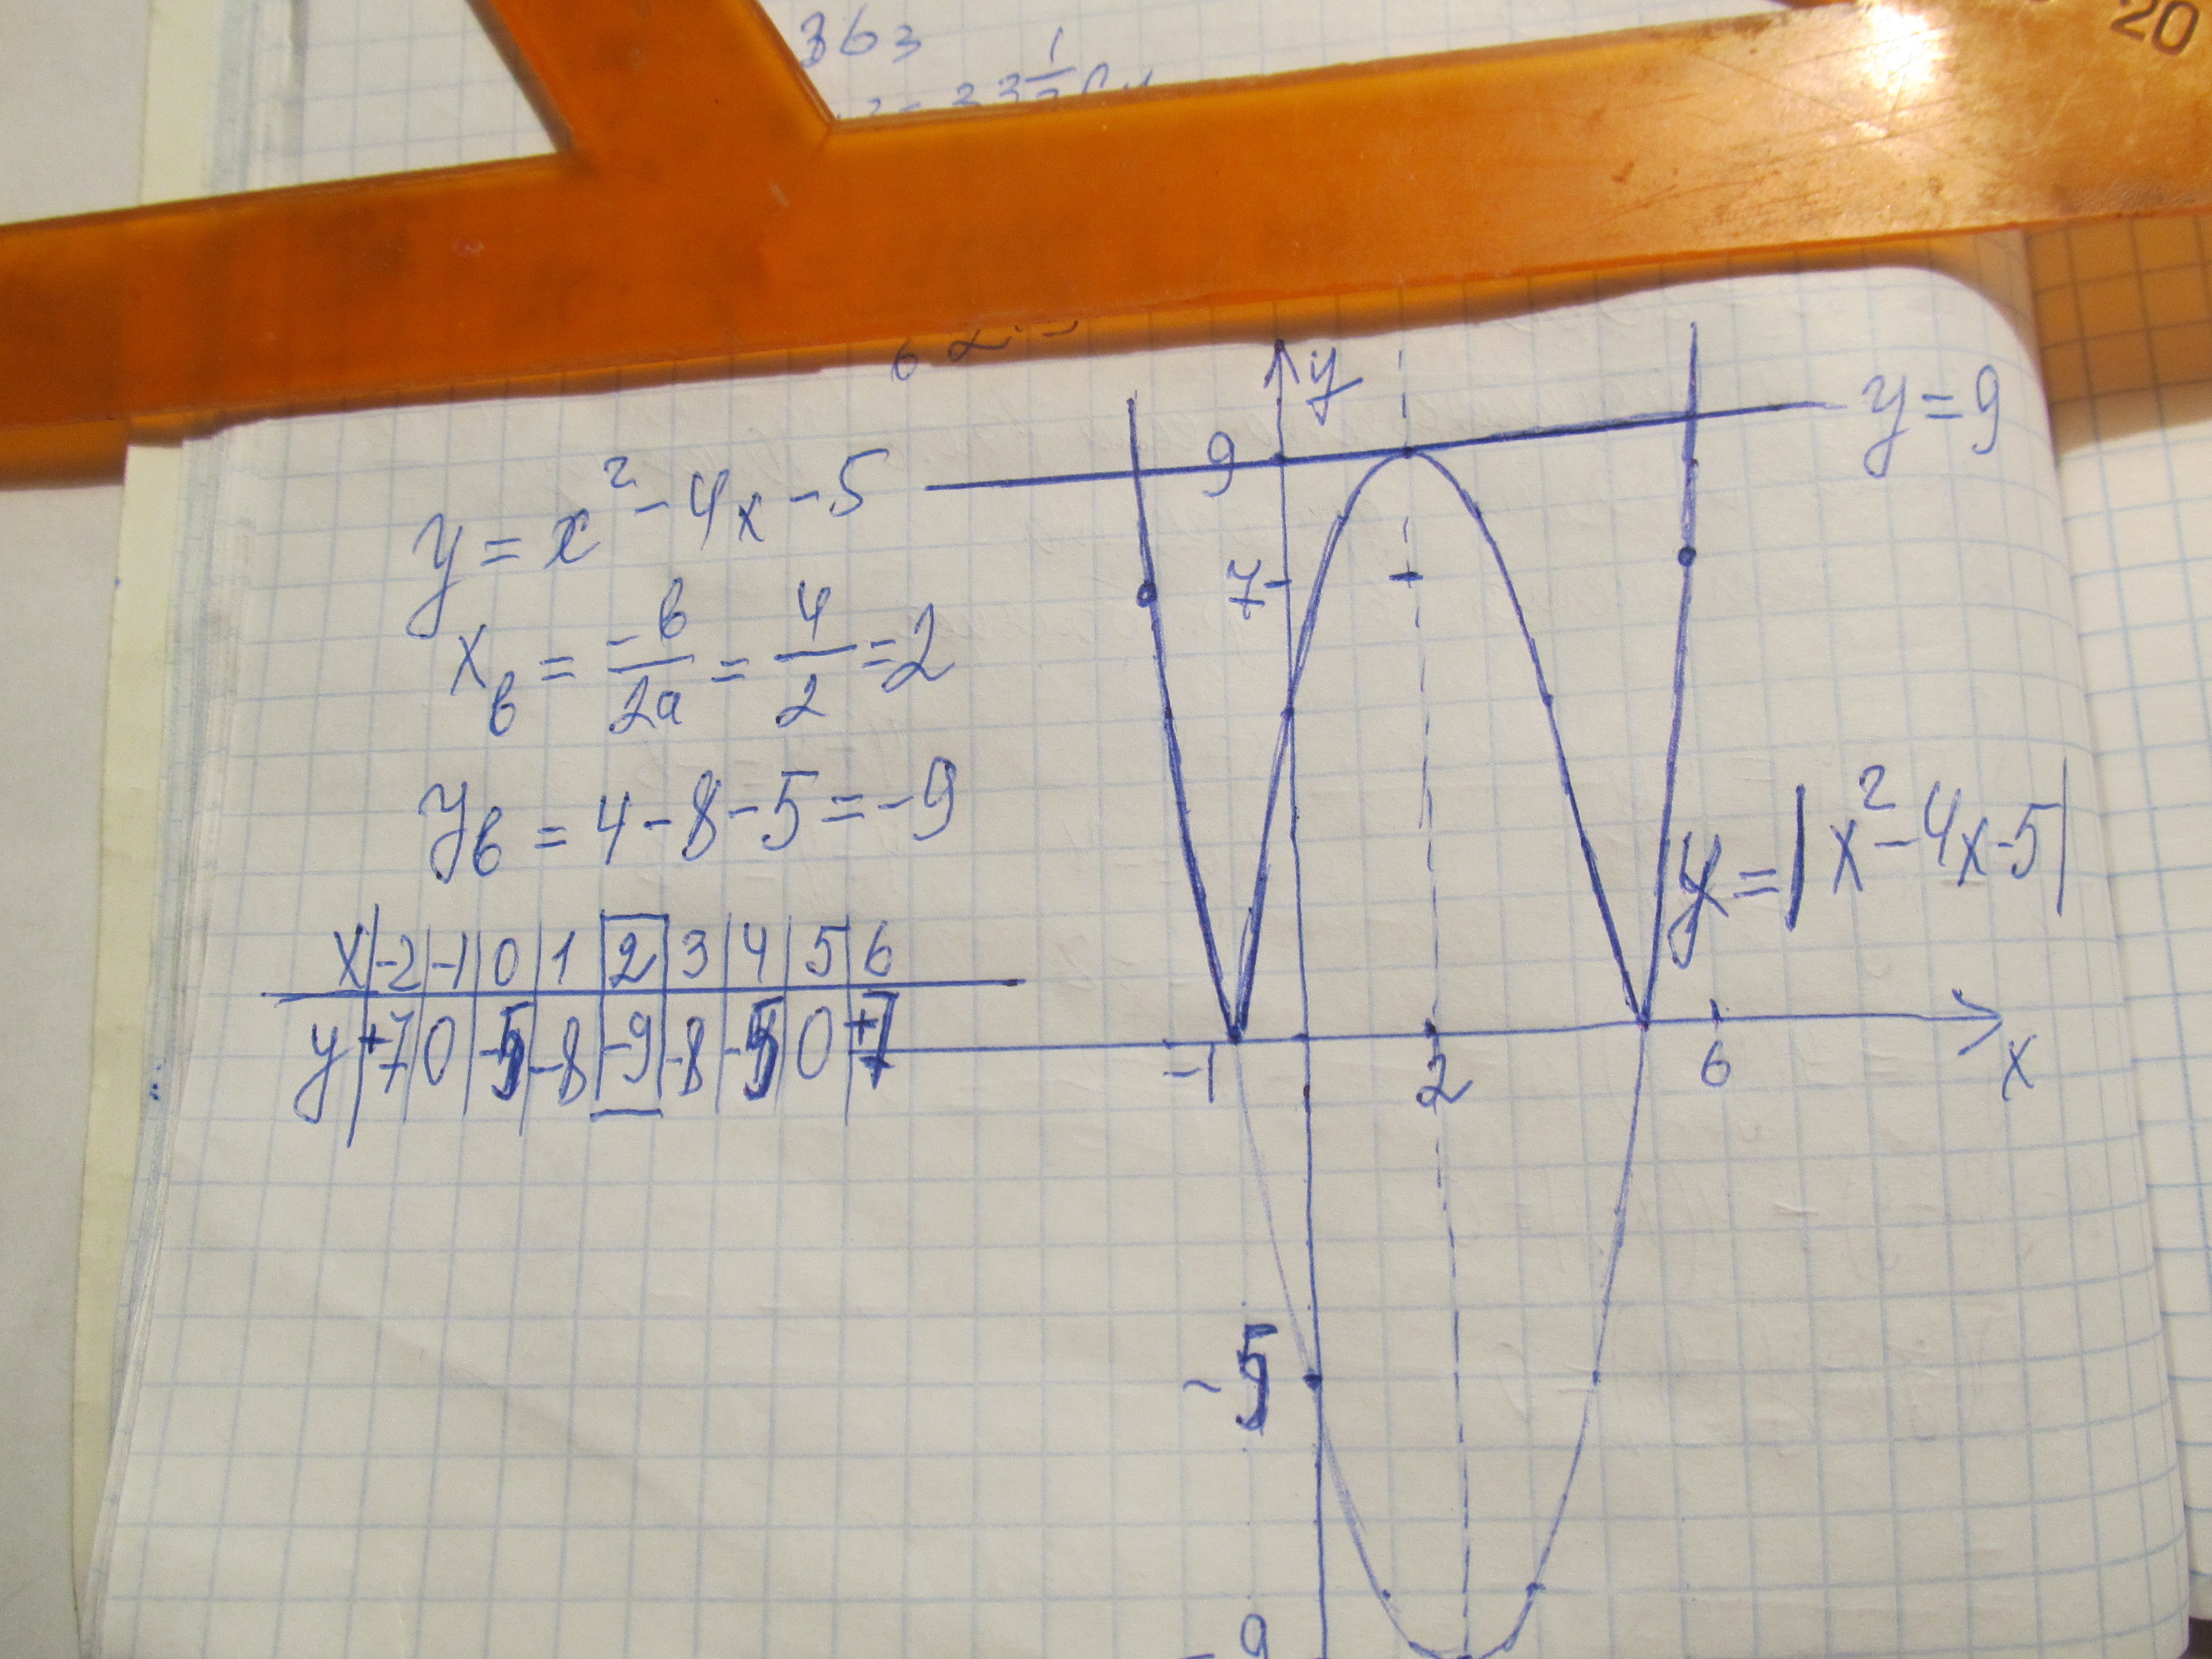 20
363
y = x² - 4x - 5
x_в = -b/2a = 4/2 = 2
y_в = 4 - 8 - 5 = -9
x | -2 | -1 | 0 | 1 | 2 | 3 | 4 | 5 | 6
y | +7 | 0 | -5 | -8 | -9 | -8 | -5 | 0 | +7
y
9
y = 9
7
y = |x² - 4x - 5|
-1
2
6
x
-5
-9